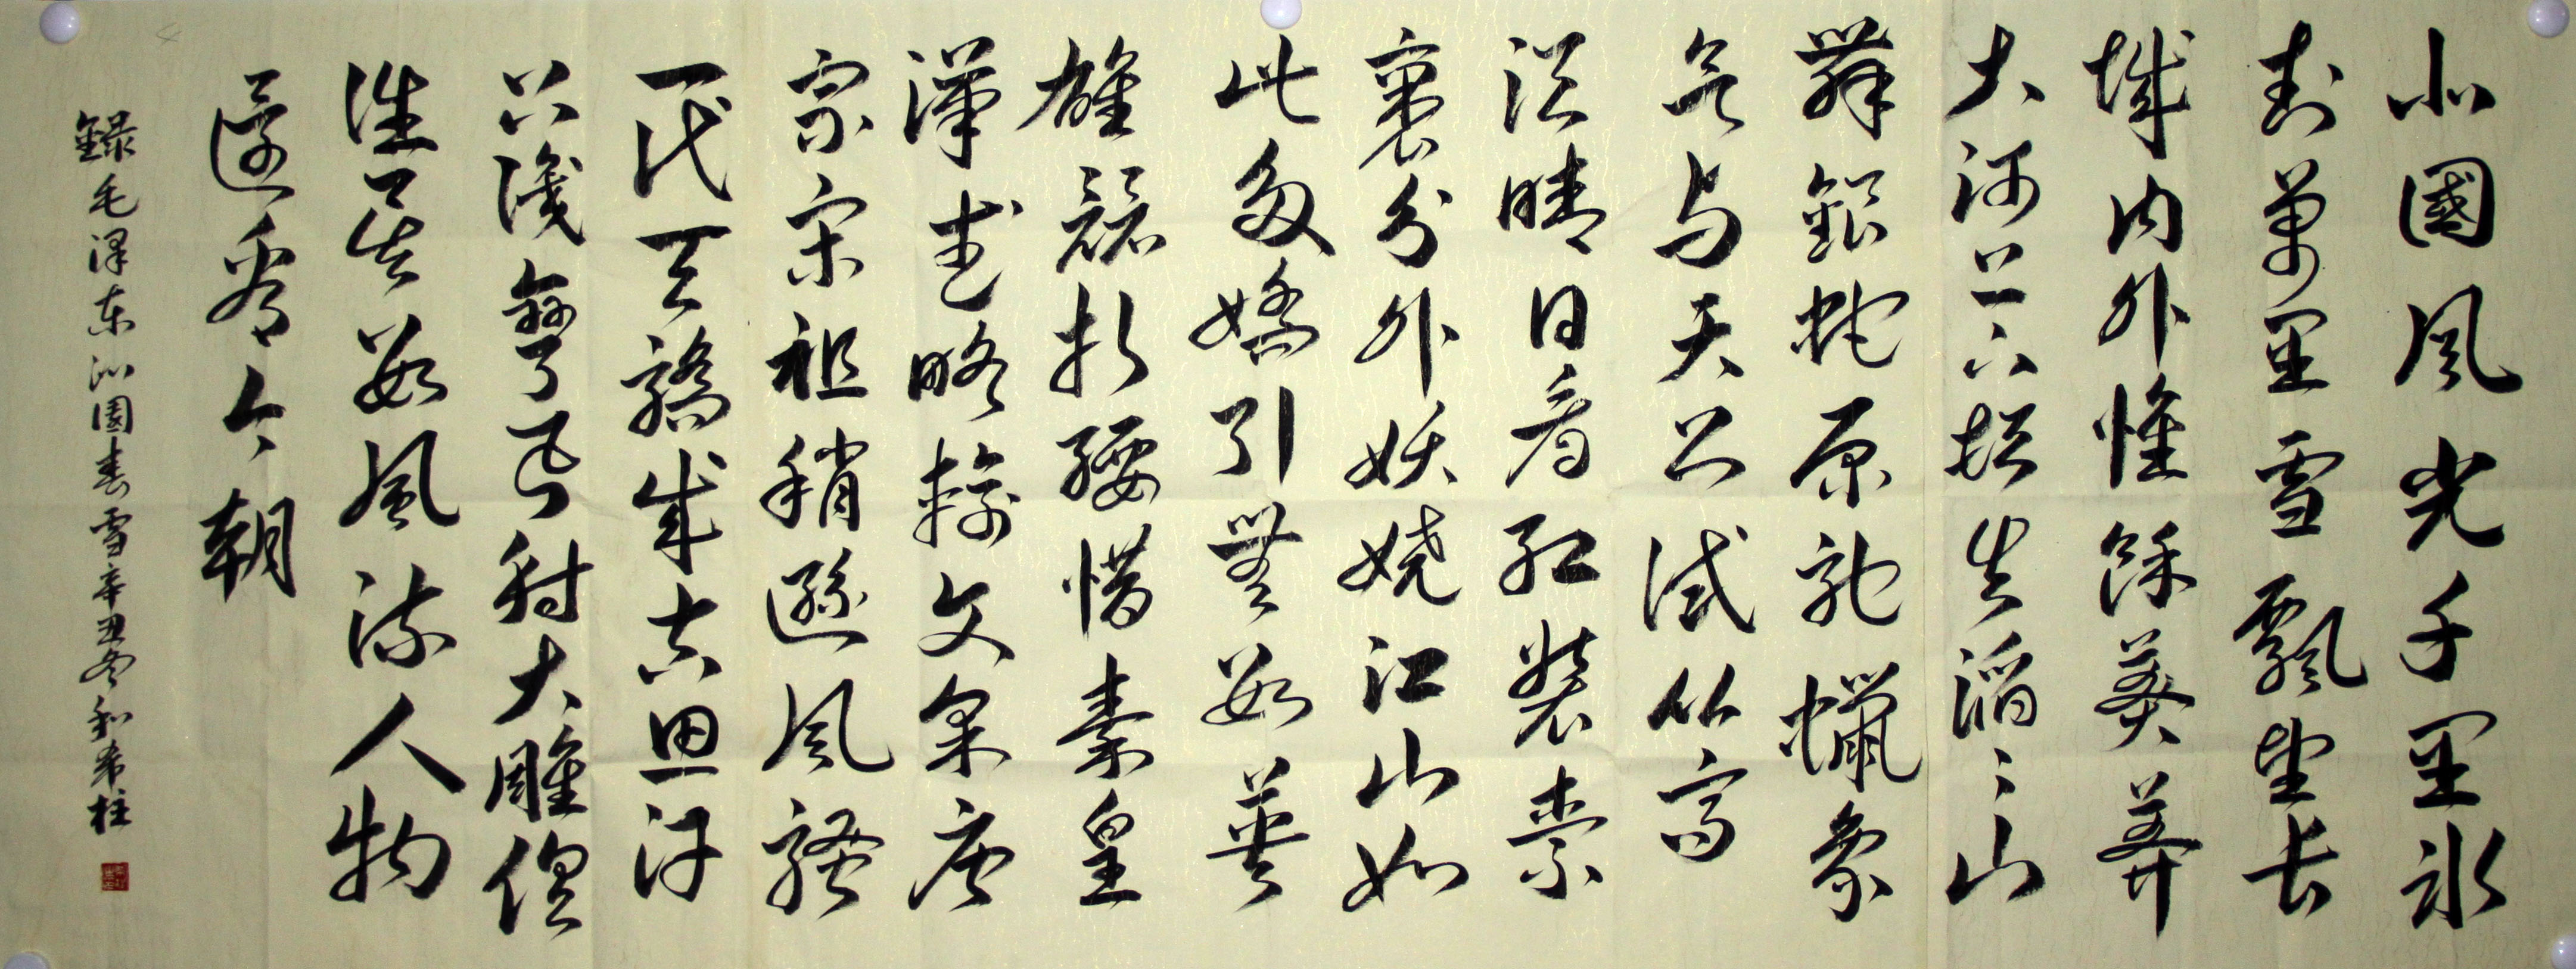 北國風光千里冰
封萬里雪飄望長
城內外惟餘莽莽
大河上下頓失滔〻山
舞銀蛇原馳蠟象
欲與天公試比高
須晴日看紅裝素
裹分外妖嬈江山如
此多嬌引無數英
雄競折腰惜秦皇
漢武略輸文采唐
宗宋祖稍遜風騷
一代天驕成吉思汗
只識彎弓射大雕俱
往矣數風流人物
還看今朝
錄毛澤東沁園春雪辛丑冬和希柱